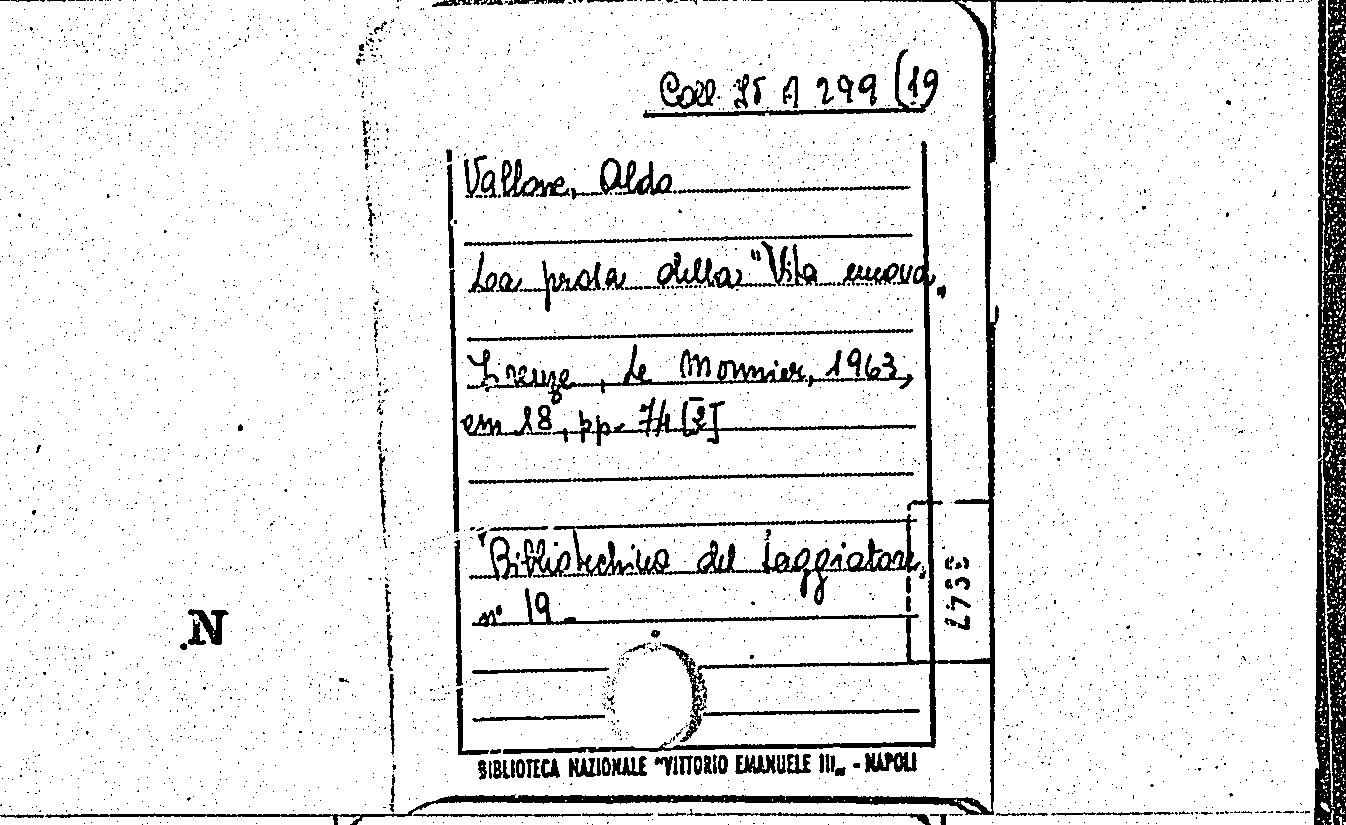 Coll. 75 A 299 (19
Vallone, Aldo
La prosa della "Vita nuova„
Firenze, Le Monnier, 1963,
in 18°, pp. 74 [2]
"Bibliotechina del Saggiatore„
n° 19.
N
BIBLIOTECA NAZIONALE "VITTORIO EMANUELE III„ - NAPOLI